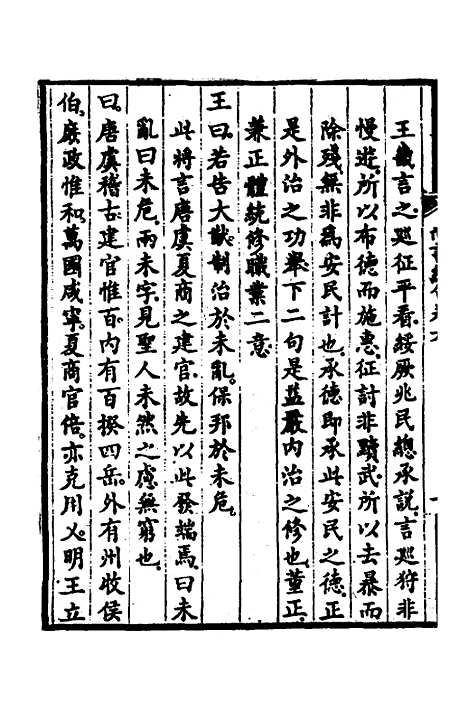 王義言之巡征平看綏厥兆民總承說言巡狩非
慢遊所以布德而施惠征討非黷武所以去暴而
除殘無非為安民計也承德即承此安民之德正
是外治之功舉下二句是益嚴內治之修也董正
兼正體統修職業二意
王曰若昔大猷制治於未亂保邦於未危
此將言唐虞夏商之建官故先以此發端焉曰未
亂曰未危兩未字見聖人未然之慮無窮也
曰唐虞稽古建官惟百內有百揆四岳外有州牧侯
伯庶政惟和萬國咸寧夏商官倍亦克用乂明王立